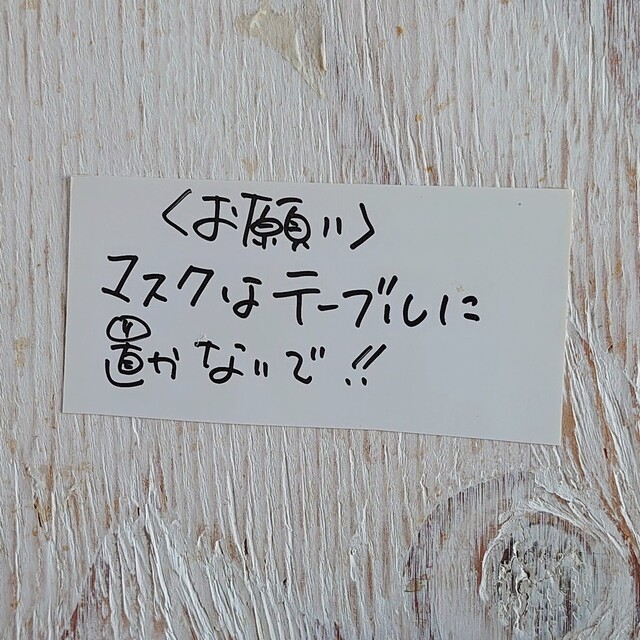 〈お願い〉
マスクはテーブルに
置かないで!!